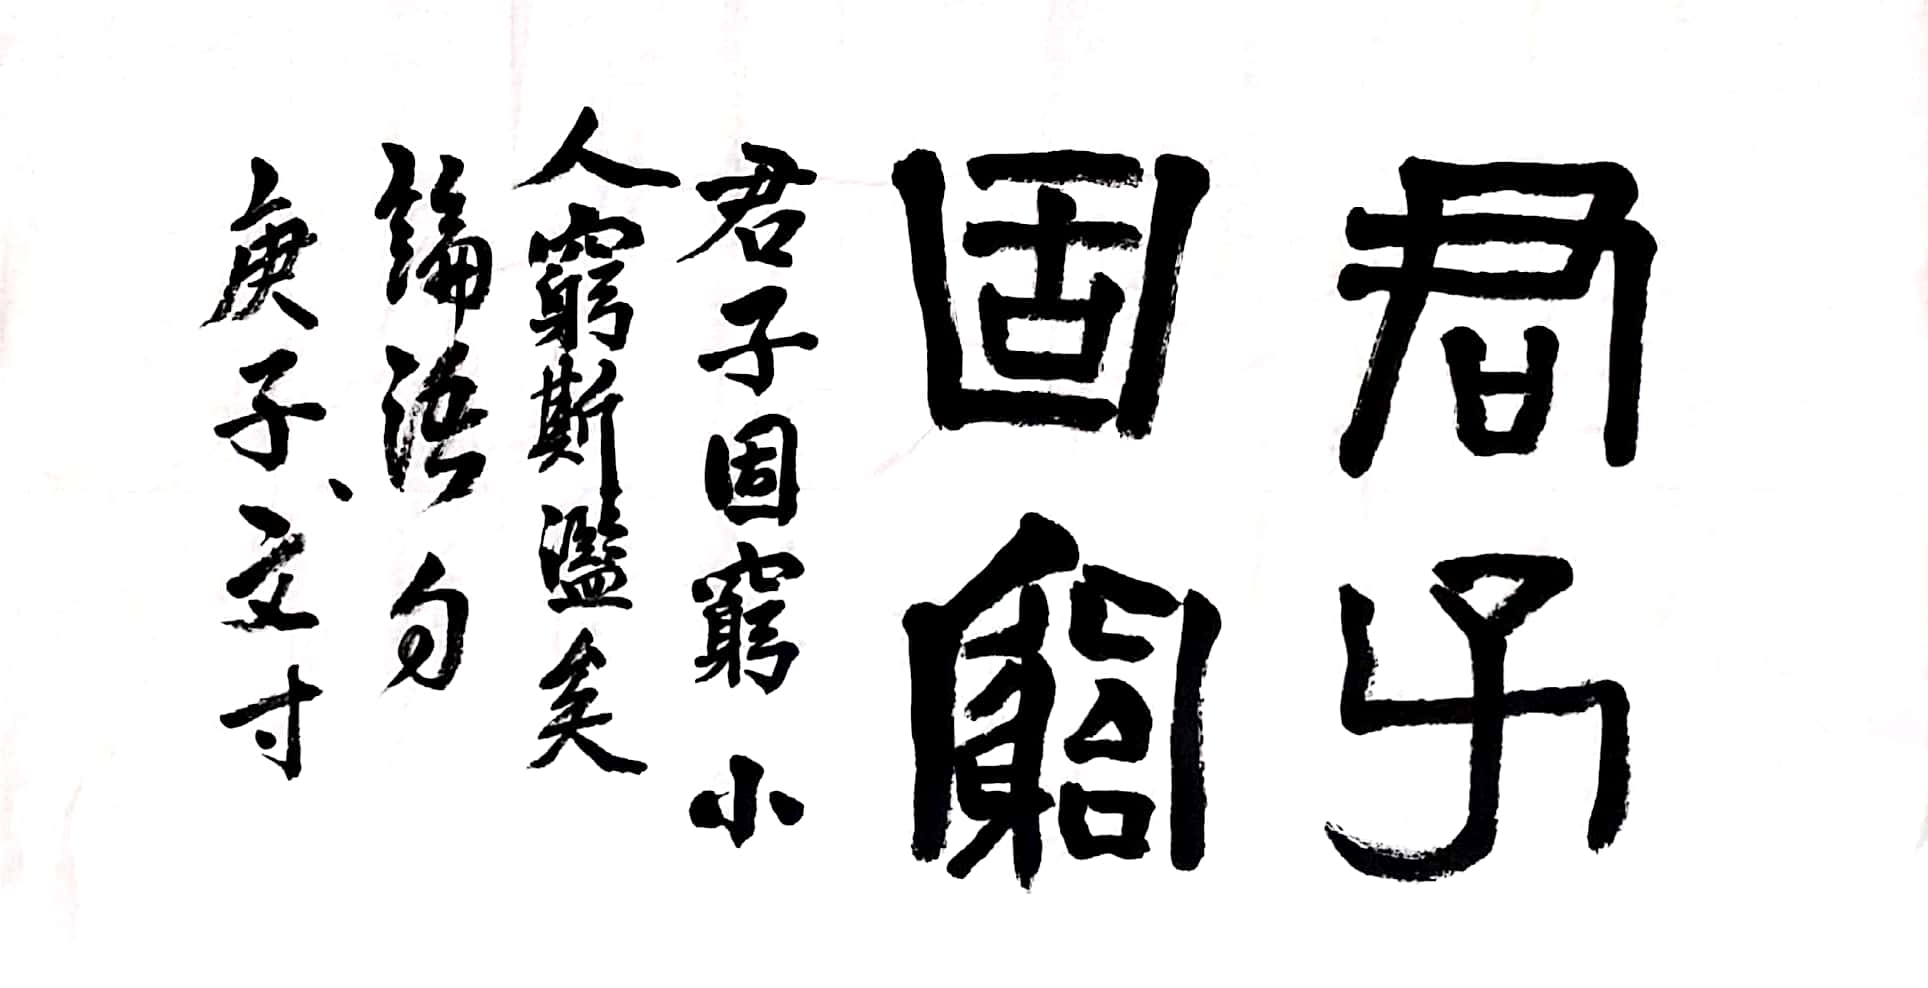 君子
固窮
君子固窮小
人窮斯濫矣
論語句
庚子、文寸